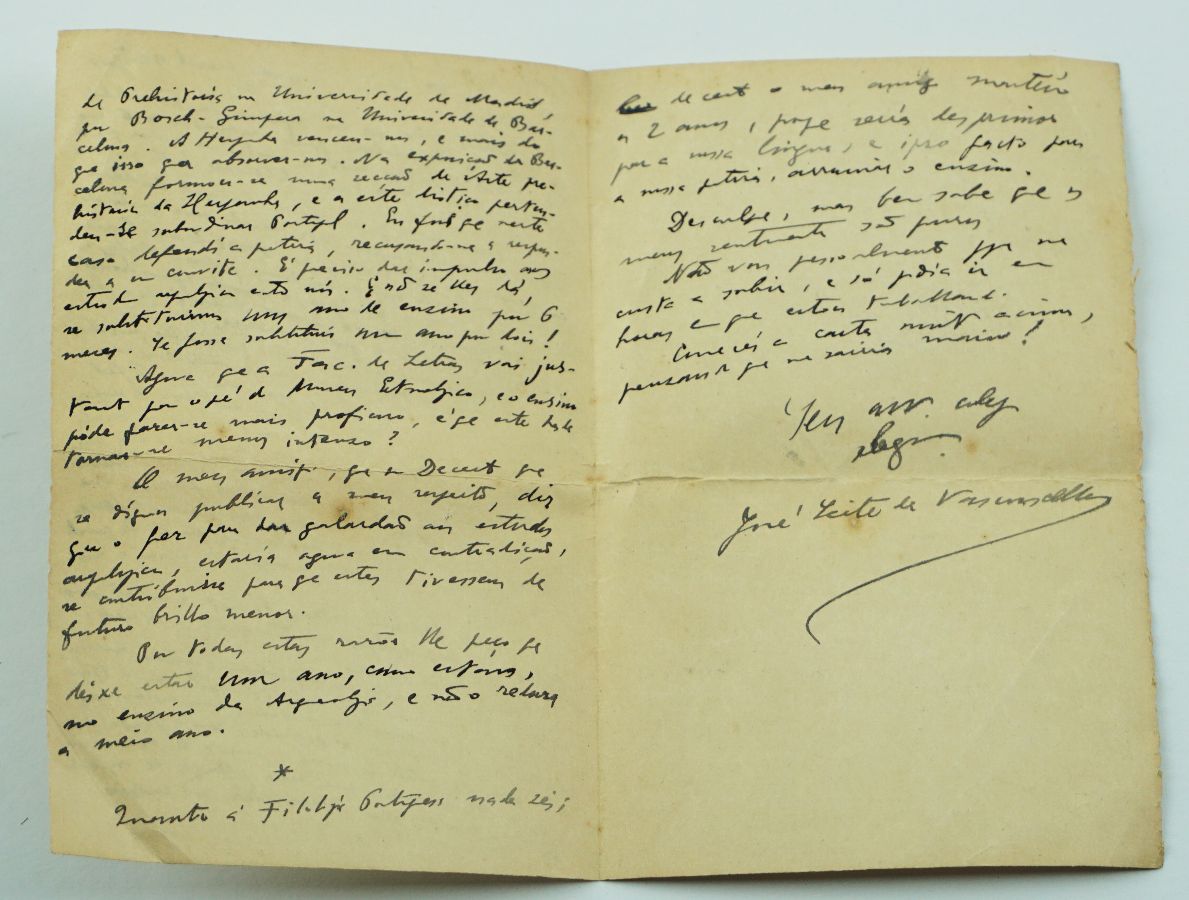 de Prehistoria na Universidade de Madrid,
por Bosch-Gimpera na Universidade de Bar-
celona. A Hespanha venceu-nos, e mais do
que isso quer absorver-nos. Na exposicaõ de Bar-
celona formou-se uma secçaõ de Arte pre-
historica da Hespanha, e a este distico preten-
deu-se subordinar Portugal. Eu é q̃ neste
caso defendi a patria, recusando-me a respon-
der a um convite. É preciso dar impulso aos
estudos entre nós. E não se lhes dá,
se substituirmos um ano de ensino por 6
meses. Se fosse substituir um ano por dois!
Agora q̃ a Fac. de Letras vai jus-
tamt por o pé do Museu Etnologico, e o ensino
póde fazer-se mais proficuo, é q̃ este ha de
tornar-se menos intenso?
O meu amigo, q̃ no Decreto q̃
se dignou publicar a meu respeito, diz
que o fez para dar galardaõ aos estudos
, estaria agora em contradiçaõ,
se contribuisse para q̃ estes tivessem de
futuro brilho menor.
Por todas estas razões lhe peço q̃
deixe estar um ano, como estava,
no ensino da Arqueologia, e não reduza
a meio ano.
*
Quanto á Filologia Portuguesa nada receio;
de certo o meu amigo manterá
os 2 anos, seria desprimor
para a nossa lingua, e ipso facto para
a nossa patria, arruinar o ensino.
Desculpe, mas bem sabe q̃ os
meus sentimentos são puros
Não vou pessoalmente pq̃ me
custa a subir, e só podia ir em
horas em q̃ estou trabalhando.
Comecei a carta muito acima,
pensando q̃ me sairia maior!
Seu am.

José Leite de Vasconcellos